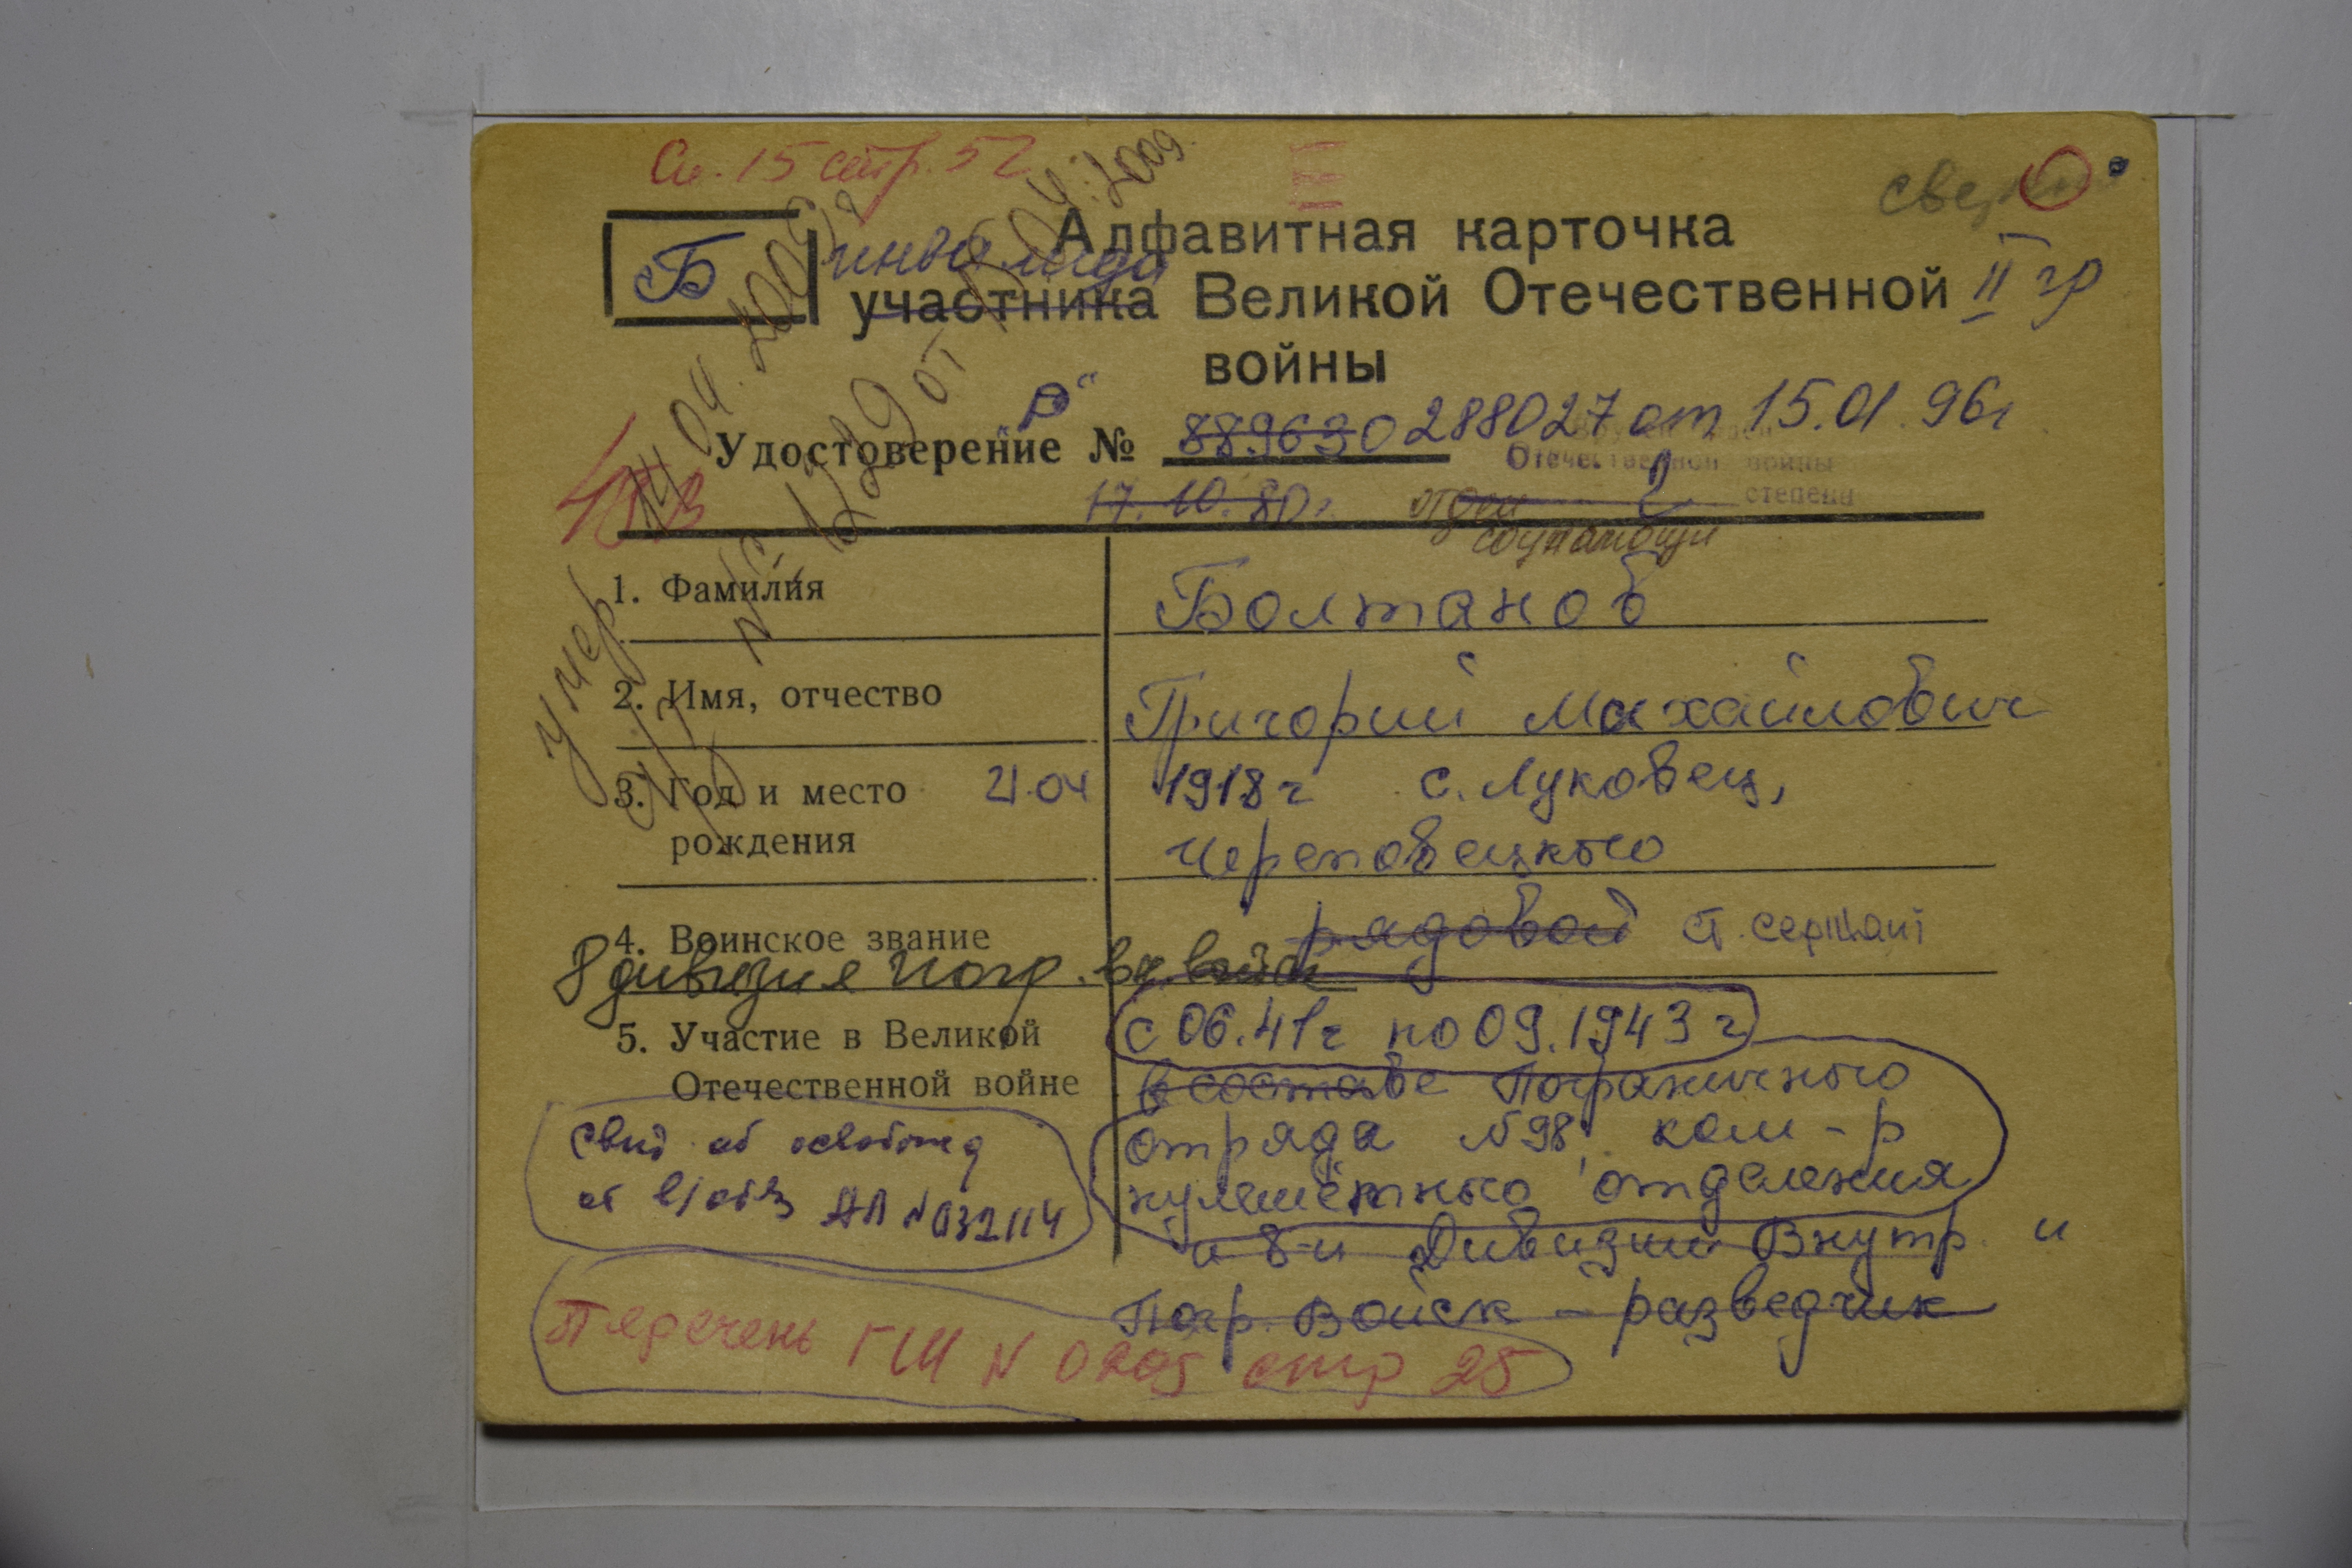 См. 15 стр. 52
Б
инвалида
Алфавитная карточка
участника Великой Отечественной
II гр
войны
"Р"
Удостоверение № 889630 288027 от 15.01.96г
Отечественной войны
17.10.80г. 2 степени
умер 14.04.2009г
№ 1229 от .04.2009.
1. Фамилия Болтанов
2. Имя, отчество Григорий Михайлович
3. Год и место 21.04 1918г с. Луковец,
рождения Череповецкого
4. Воинское звание рядовой ст. сержант
8 дивизия погр. вн. войск
5. Участие в Великой с 06.41г по 09.1943г
Отечественной войне в составе Пограничного
отряда №98, ком-р
пулемётного отделения
и 8-й Дивизии Внутр. и
Погр. Войск - разведчик
Свид об освобожд
от в/обяз АП №032114
Перечень ГШ N 0205 стр 25